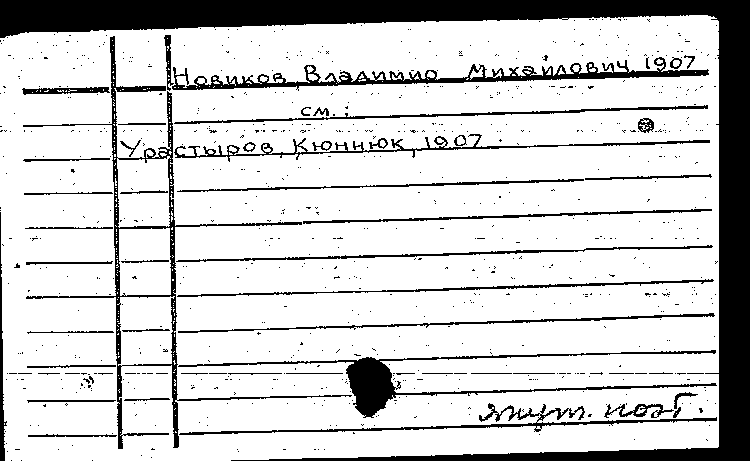 Новиков, Владимир Михайлович, 1907
см.:
Урастыров, Кюннюк, 1907
якут. поэт.